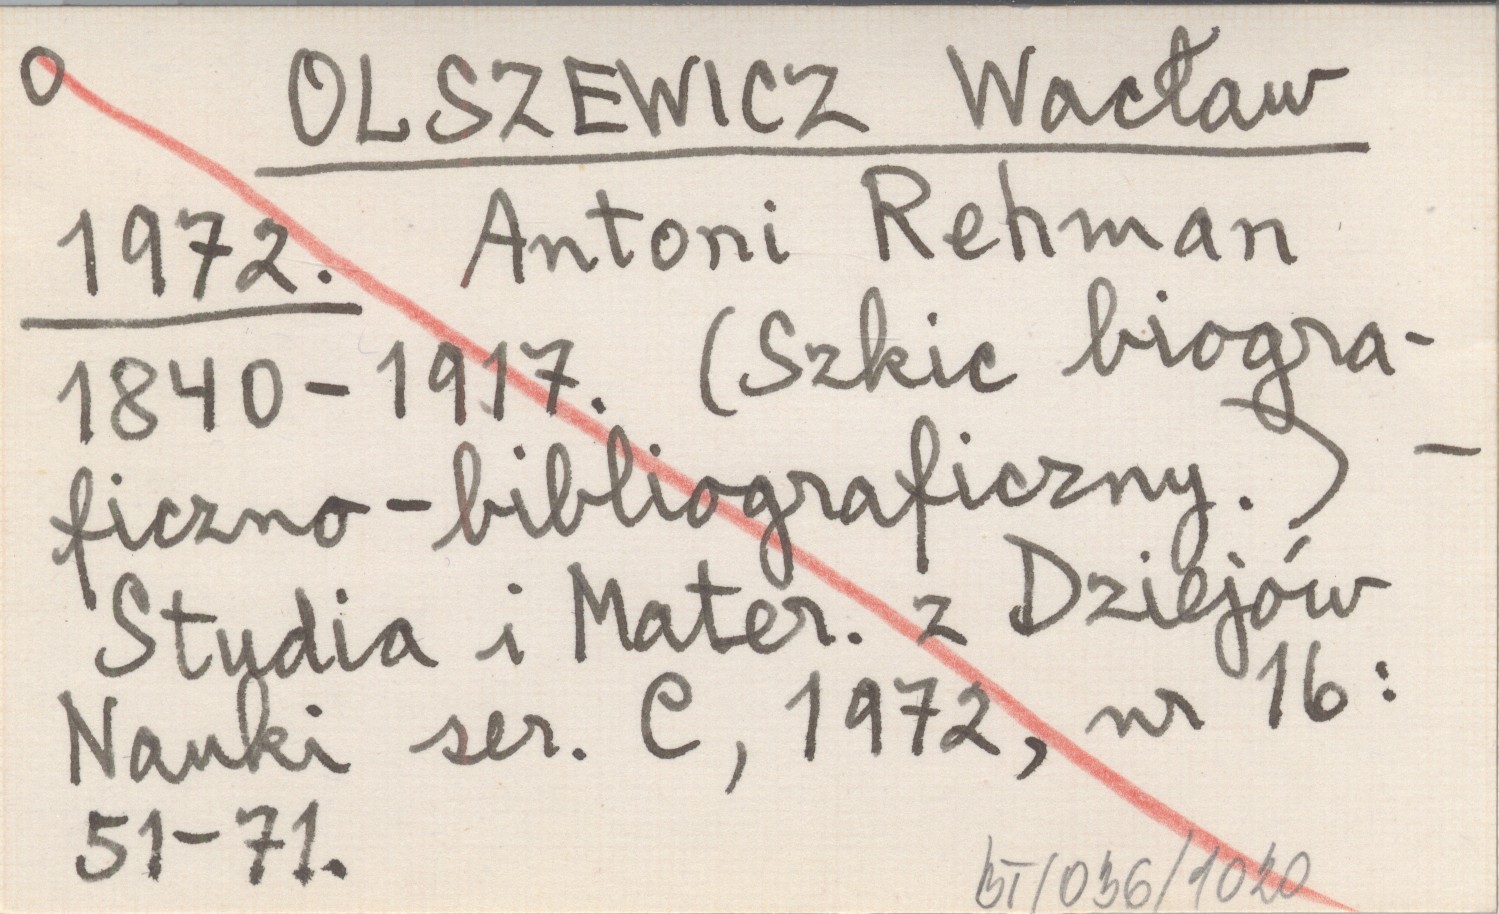 O OLSZEWICZ Wacław
1972. Antoni Rehman
1840-1917. (Szkic biogra-
ficzno-bibliograficzny.) -
Studia i Mater. z Dziejów
Nauki ser. C, 1972, nr 16:
51-71.
BT/036/1020